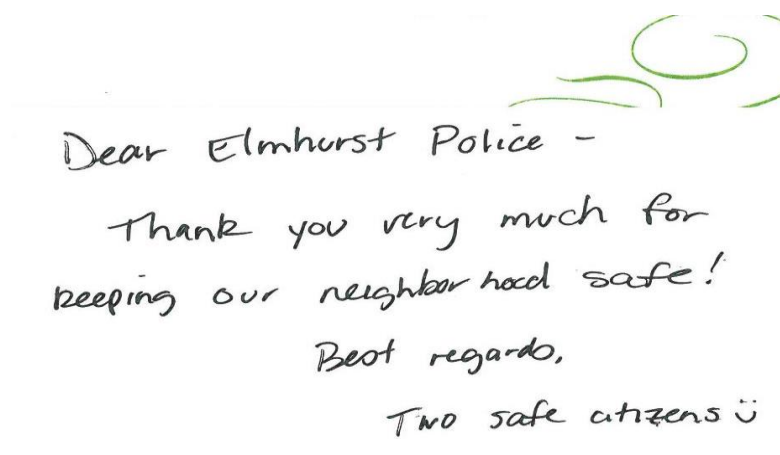 Dear Elmhurst Police -
Thank you very much for
keeping our neighborhood safe!
Best regards,
Two safe citizens ü